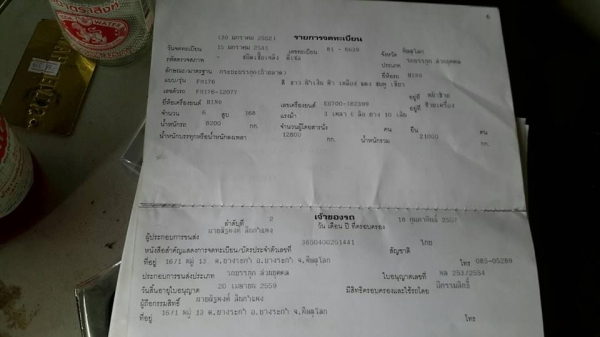 6
(30 มกราคม 2562) รายการจดทะเบียน
วันจดทะเบียน 15 มกราคม 2541 เลขทะเบียน 81 - 0639 จังหวัด พิษณุโลก
รหัสตรวจสภาพ - ชนิดเชื้อเพลิง ดีเซล ประเภท รถบรรทุก ส่วนบุคคล
ลักษณะ/มาตรฐาน กระบะบรรทุก ยี่ห้อรถ HINO
แบบ/รุ่น FD176 สี ขาว ฟ้า เงิน ฟ้า เหลือง แดง ชมพู เขียว
เลขตัวรถ FD178-12077 อยู่ที่
ยี่ห้อเครื่องยนต์ HINO เลขเครื่องยนต์ EH700-162399 อยู่ที่ ซ้ายเครื่อง
จำนวน 6 สูบ 168 แรงม้า 3 เพลา 6 ล้อ ยาง 10 เส้น
น้ำหนักรถ 8200 กก. จำนวนผู้โดยสารนั่ง คน ยืน คน
น้ำหนักบรรทุกหรือน้ำหนักลงเพลา 12800 กก. น้ำหนักรวม 21000 กก.
เจ้าของรถ
ลำดับที่ 2 วัน เดือน ปี ที่ครอบครอง 18 กุมภาพันธ์
ผู้ประกอบการขนส่ง
หนังสือสำคัญแสดงการจดทะเบียน/บัตรประจำตัวเลขที่ 3650400251441 สัญชาติ ไทย
ที่อยู่ 16/1 หมู่ 13 ต.บางระกำ อ.บางระกำ จ.พิษณุโลก โทร 085-05289
ประกอบการขนส่งประเภท รถบรรทุก ส่วนบุคคล ใบอนุญาตเลขที่ พล 253/2554
วันสิ้นอายุใบอนุญาต 20 เมษายน 2559 มีสิทธิครอบครองและใช้รถโดย มีกรรมสิทธิ์
ผู้ถือกรรมสิทธิ์
ที่อยู่ 16/1 หมู่ 13 ต.บางระกำ อ.บางระกำ จ.พิษณุโลก โทร